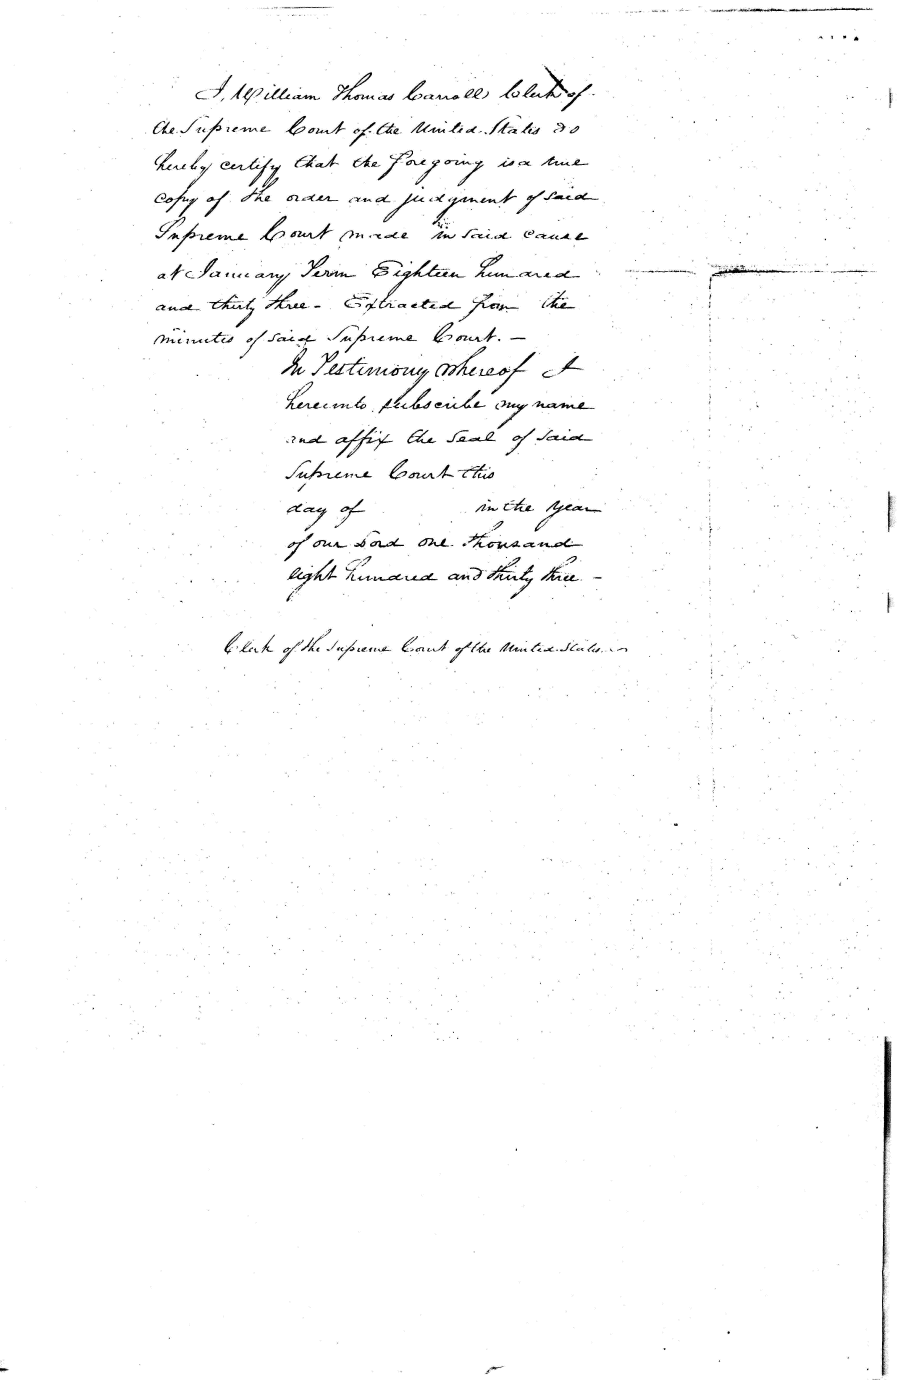 I, William Thomas Carroll Clerk of
the Supreme Court of the United States do
hereby certify that the foregoing is a true
copy of the order and judgment of said
Supreme Court made in said cause
at January Term Eighteen hundred
and thirty three - Extracted from the
minutes of said Supreme Court. -
In Testimony whereof I
hereunto subscribe my name
and affix the seal of said
Supreme Court this
day of in the year
of our Lord one thousand
eight hundred and thirty three -
Clerk of the Supreme Court of the United States